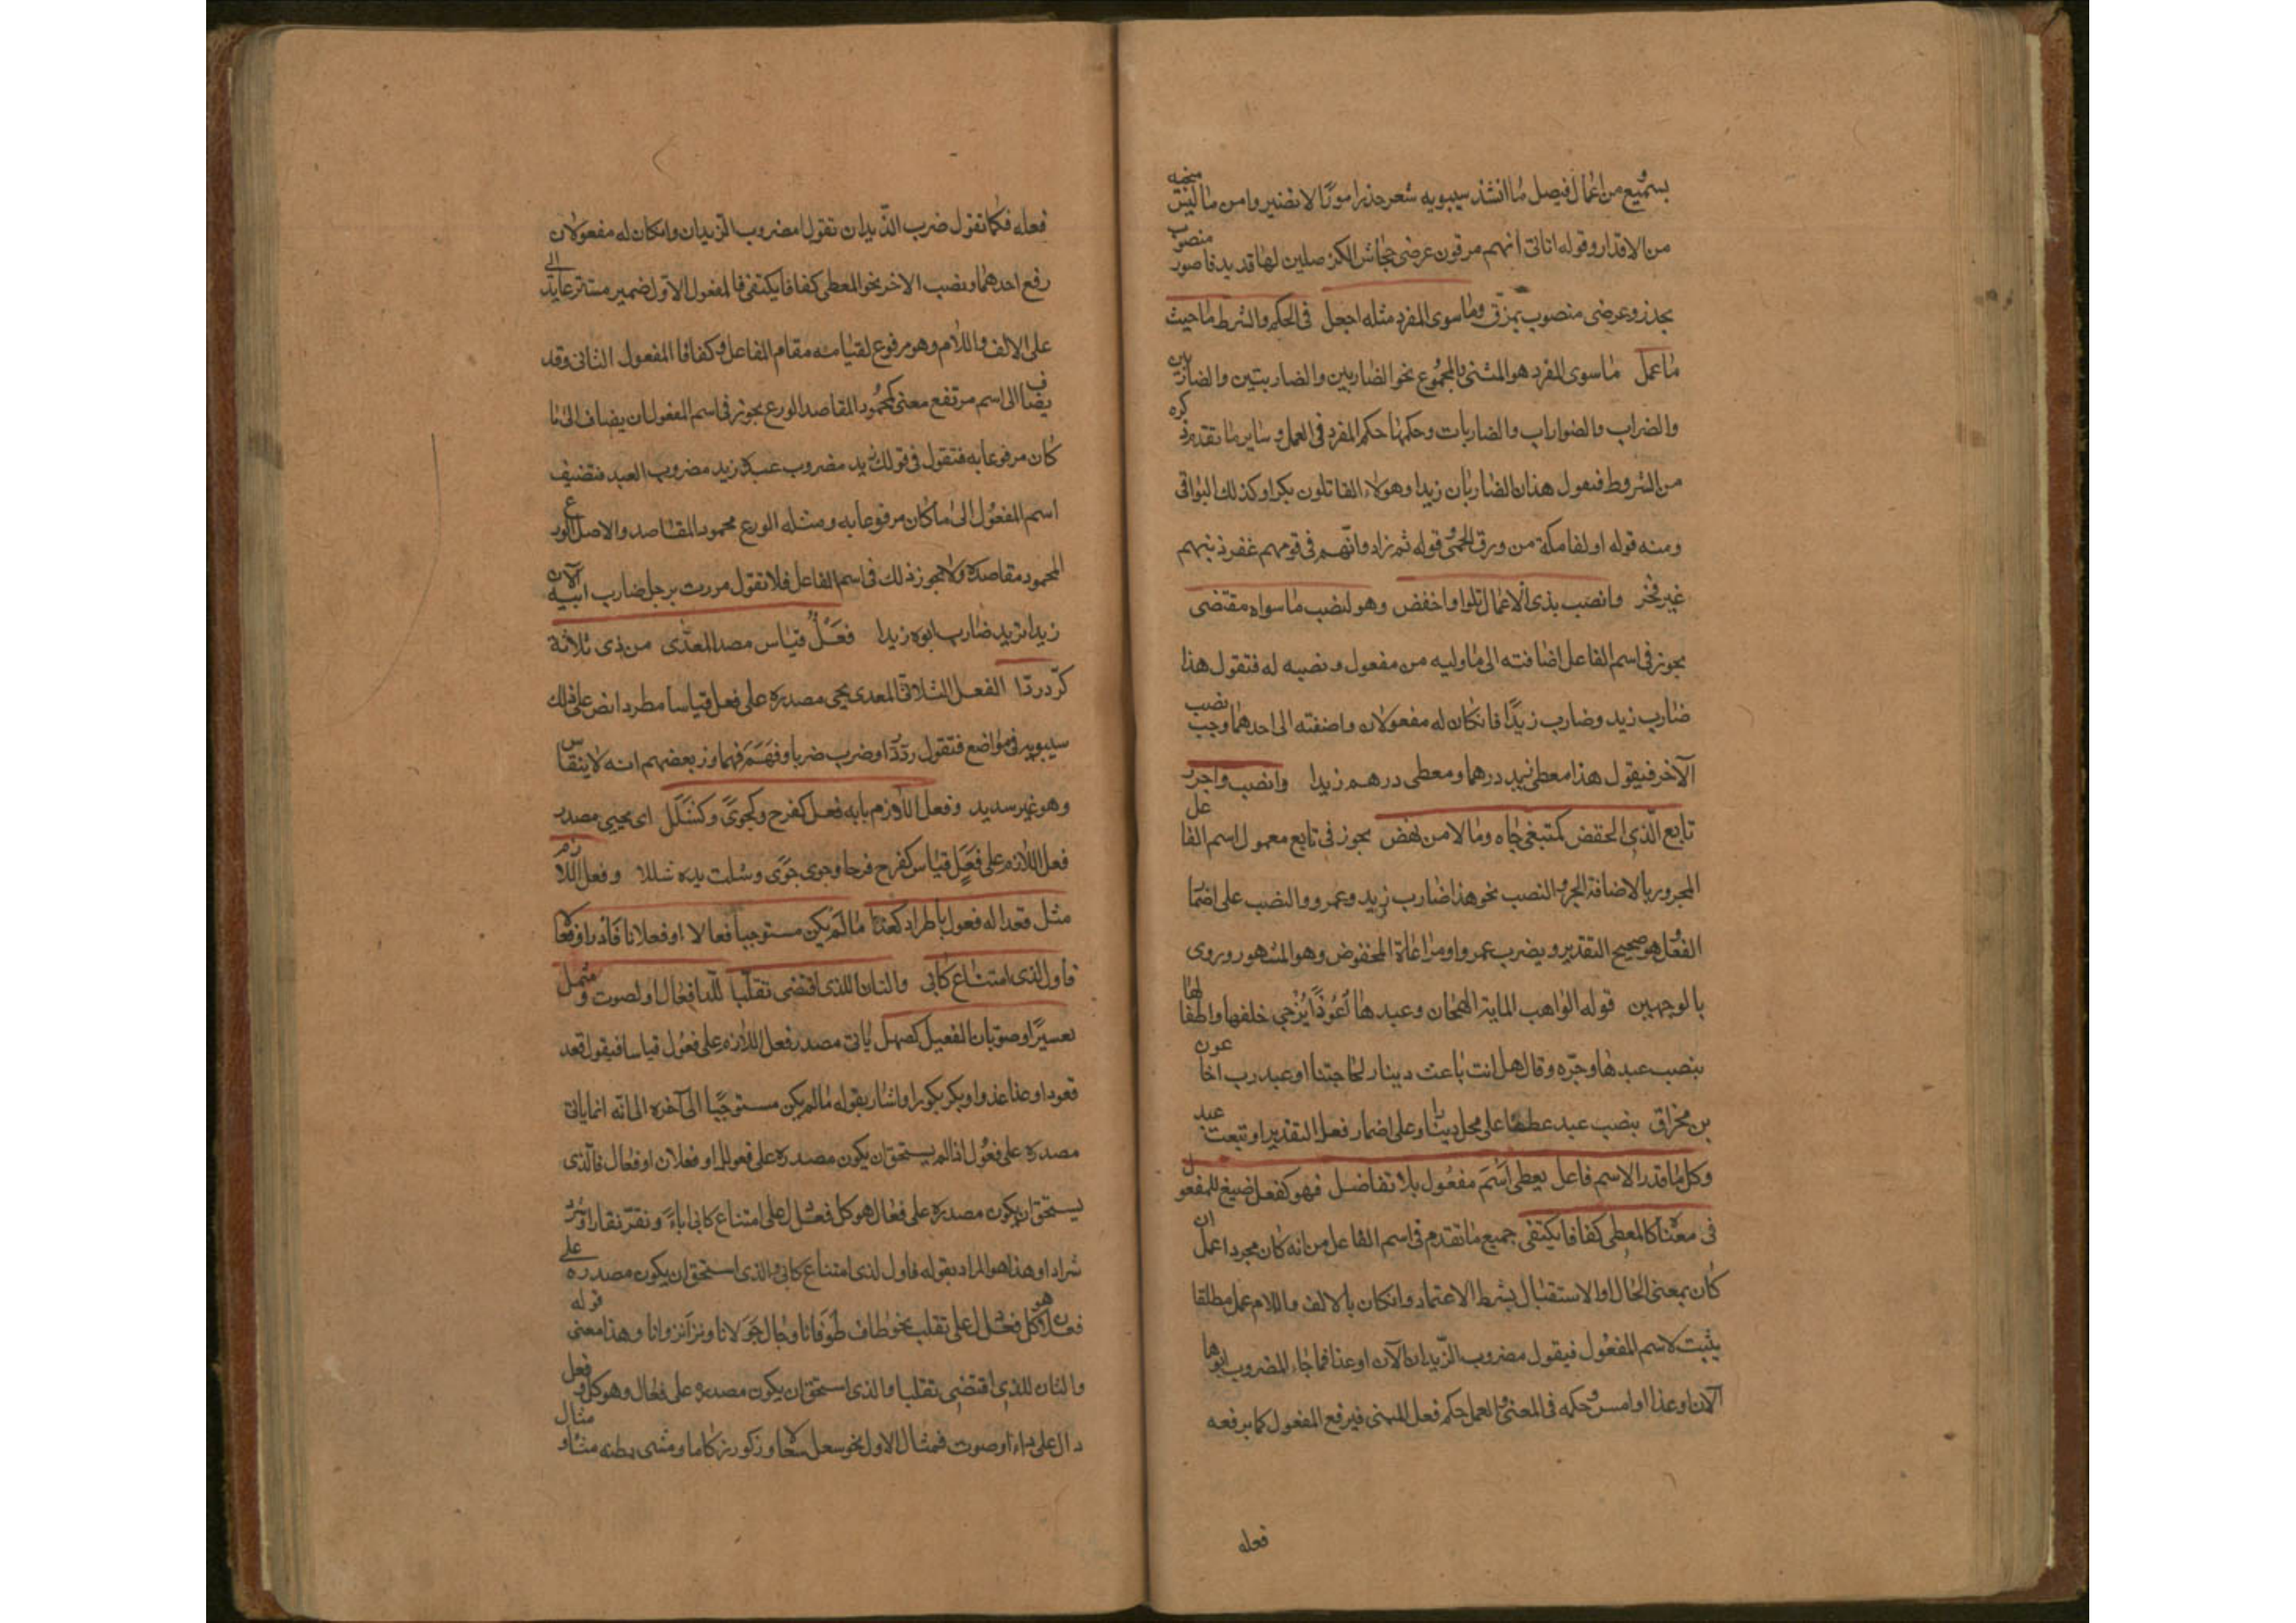 بسميع من اعمال فيصل ما انشد سيبويه شعر حذر امورًا لا تضير وامن ما ليس منجيه
من الاقدار وقوله اتانى انهم مزقون عرضى جحاش الكرملين لها قديد فامور منصوب
بحذر وعرضى منصوب بمزق وما سوى المفرد مثله اجعل فى الحكم والشرط ماحيث
ما عمل ما سوى المفرد هو المثنى والمجموع نحو الضاربين والضاربتين والضاربين
والضراب والضوارب والضاربات وحكمها حكم المفرد فى العمل وساير ما تقدم ذكره
من الشروط فتقول هذان الضاربان زيدا وهولاء القاتلون بكرا وكذلك البواقى
ومنه قوله اوالفا مكة من ورق الحمى وقوله ثم زادوا انّهم فى قومهم غفر ذنبهم
غير فخر وانصب بذى الاعمال تلوا واخفض وهو لنصب ما سواه مقتضى
يجوز فى اسم الفاعل اضافته الى ما وليه من مفعول ونصبه له فتقول هذا
ضارب زيد وضارب زيدًا فان كان له مفعولان واضفته الى احدهما وجب نصب
الآخر فيقول هذا معطى زيد درهما ومعطى درهم زيدا وانصب واجرر
تابع الّذى الخفض كمتبغى جاه ومالا من نهض يجوز فى تابع معمول اسم الفاعل
المجرور بالاضافة الجر والنصب نحو هذا ضارب زيد وعمرو والنصب على اضما
الفعل وهو صحيح التقدير ويضرب عمروا ومراعاة المخفوض وهو المشهور وروى
بالوجهين قوله الواهب الماية الهجان وعبدها عُوذًا يُزجى خلفها واطفالها
بنصب عبدها وجرّه وقال هل انت باعث دينار لحاجتنا او عبد رب اخا عون
بن مخراق بنصب عبد عطفا على محل دينار وعلى اضمار فعل التقدير او تبعث عبد
وكل ما قدر الاسم فاعل يعطى اسم مفعول بلا تفاضل فهو كفعل صيغ للمفعول
فى معناه كالمعطى كفافا يكتفى جميع ما تقدم فى اسم الفاعل من انه كان مجردا عمل ان
كان بمعنى الحال او الاستقبال بشرط الاعتماد وان كان بالالف واللام عمل مطلقا
يثبت لاسم المفعول فيقول مضروب الزيدان الآن او غدا فما جاء المضروب ابوها
الآن او غدا او امس وحكمه فى المعنى والعمل حكم فعل المبنى فيرفع المفعول كما يرفعه
فعله
فعله فكما تقول ضرب الزّيدان تقول امضروب الزيدان وان كان له مفعولان
رفع احدهما ونصب الاخر نحو المعطى كفافا يكتفى فالمفعول الاوّل ضمير مستتر عايد الى
على الالف واللام وهو مرفوع لقيامه مقام الفاعل وكفافا المفعول الثانى وقد
يضاف الى اسم مرتفع معنى كمحمود المقاصد الورع يجوز فى اسم المفعول ان يضاف الى ما
كان مرفوعا به فتقول فى قولك زيد مضروب عبده زيد مضروب العبد فتضيف
اسم المفعول الى ما كان مرفوعا به ومثله الورع محمود المقاصد والاصل الورع
المحمود مقاصده ولا يجوز ذلك فى اسم الفاعل فلا تقول مررت برجل ضارب ابيه الآن
زيدا تريد ضارب ابوه زيدا فَعْلٌ قياس مصدر المعدّى من ذى ثلاثة
كرّد ردّا الفعل الثلاثى المعدى يجى مصدره على فعل قياسا مطردا نص على ذلك
سيبويه فى مواضع فتقول ردّ ردّا وضرب ضربا وفهم فهما وزعم بعضهم انه لا ينقاس
وهو غير سديد وفعل اللازم بابه فعل كفرح وكجوىً وكشلل اى يجيى مصدر
فعل اللازم على فَعَلٍ قياس كفرح فرحا وجوى جوًى وشلت يده شللا وفعل اللازم
مثل قعدا له فعول باطراد كغدا ما لم يكن مستوجبا فعالا او فعلانا فادر او فعالا
فاول لذى امتناع كابى والثان للذى اقتضى تقلّبا للدا فعال او لصوت وشمل
سيرًا وصوتا ن الفعيل كصهل ياتى مصدر فعل اللازم على فعول قياسا فيقول قعد
قعودا وغدا غدوا وبكر بكورا واشار بقوله ما لم يكن مستوجبًا الى آخره الى انه انما ياتى
مصدره على فعول اذا لم يستحق ان يكون مصدره على فعال او فعلان او فعال فالّذى
يستحق ان يكون مصدره على فعال هو كل فعل دل على امتناع كابى اباءً ونفر نفارا وشرد
شرادا وهذا هو المراد بقوله فاول لذى امتناع كابى والذى استحق ان يكون مصدره على
فعلان هو كل فعل دل على تقلب نحو طاف طوفانا وجال جولانا ونزا نزوانا وهذا معنى قوله
والثان للذى اقتضى تقلبا والذى استحق ان يكون مصدره على فعال وهو كل فعل
دال على داء او صوت فمثال الاول نحو سعل سعالا وزكم زكاما ومشى بطنه مشاء ومثال